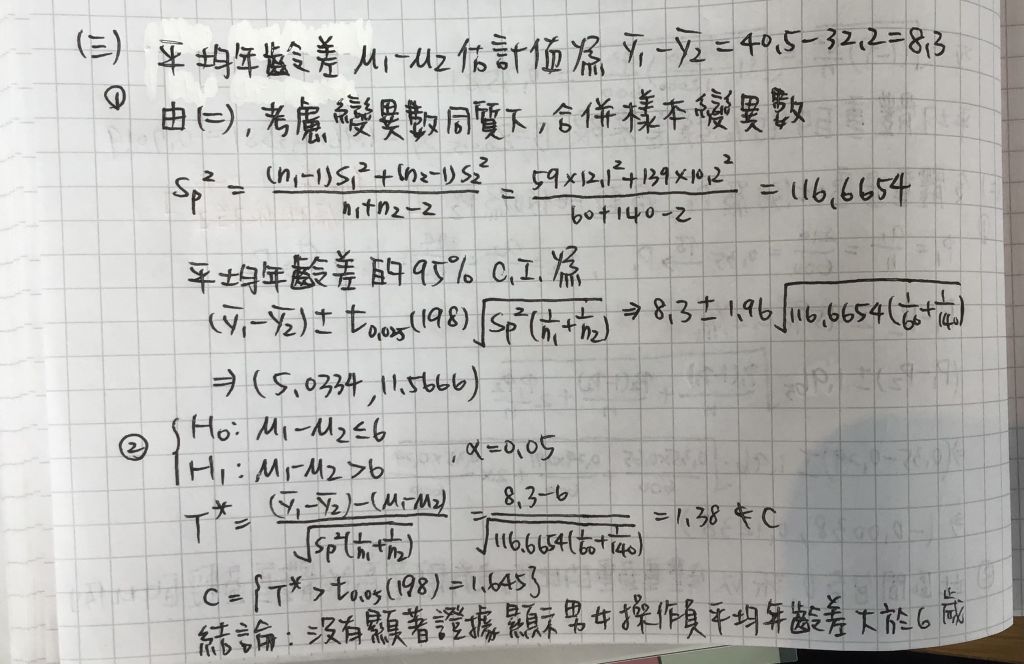 (三) 平均年齡差 μ₁-μ₂ 估計值為 ȳ₁-ȳ₂ = 40.5-32.2 = 8.3
① 由(二), 考慮變異數同質下, 合併樣本變異數
Sp² = ((n₁-1)S₁²+(n₂-1)S₂²)/(n₁+n₂-2) = (59×12.1²+139×10.2²)/(60+140-2) = 116.6654
平均年齡差的95% C.I. 為
(ȳ₁-ȳ₂) ± t₀.₀₂₅(198) √(Sp²(1/n₁+1/n₂)) ⇒ 8.3 ± 1.96 √(116.6654(1/60+1/140))
⇒ (5.0334, 11.5666)
② { H₀: μ₁-μ₂ ≤ 6
H₁: μ₁-μ₂ > 6 , α=0.05
T* = ((ȳ₁-ȳ₂)-(μ₁-μ₂))/√(Sp²(1/n₁+1/n₂)) = (8.3-6)/√(116.6654(1/60+1/140)) = 1.38 ∉ C
C = {T* > t₀.₀₅(198) = 1.645}
結論: 沒有顯著證據顯示男女操作員平均年齡差大於6歲